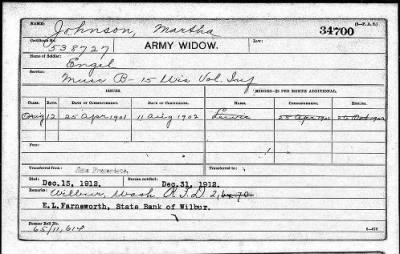 (3-P.A.S.)
Name: Johnson, Martha 34700
Certificate No.: 538727 ARMY WIDOW. Law:
Name of Soldier: Engel
Service: Musc B-15 Wis Vol. Inf
ISSUES. MINORS—$2 PER MONTH ADDITIONAL.
CLASS. RATE. DATE OF COMMENCEMENT. DATE OF CERTIFICATE. NAMES. COMMENCEMENT. ENDING.
Orig 12 25 Apr 1901 11 Aug 1902 25 Apr 1901
From: To:
Transferred from: San Francisco.
Died: Dec. 15, 1912. Bureau notified: Dec. 31, 1912.
Remarks: Wilbur, Wash R.F.D 2,
E. L. Farnsworth, State Bank of Wilbur.
Former Roll No.
65/11,614